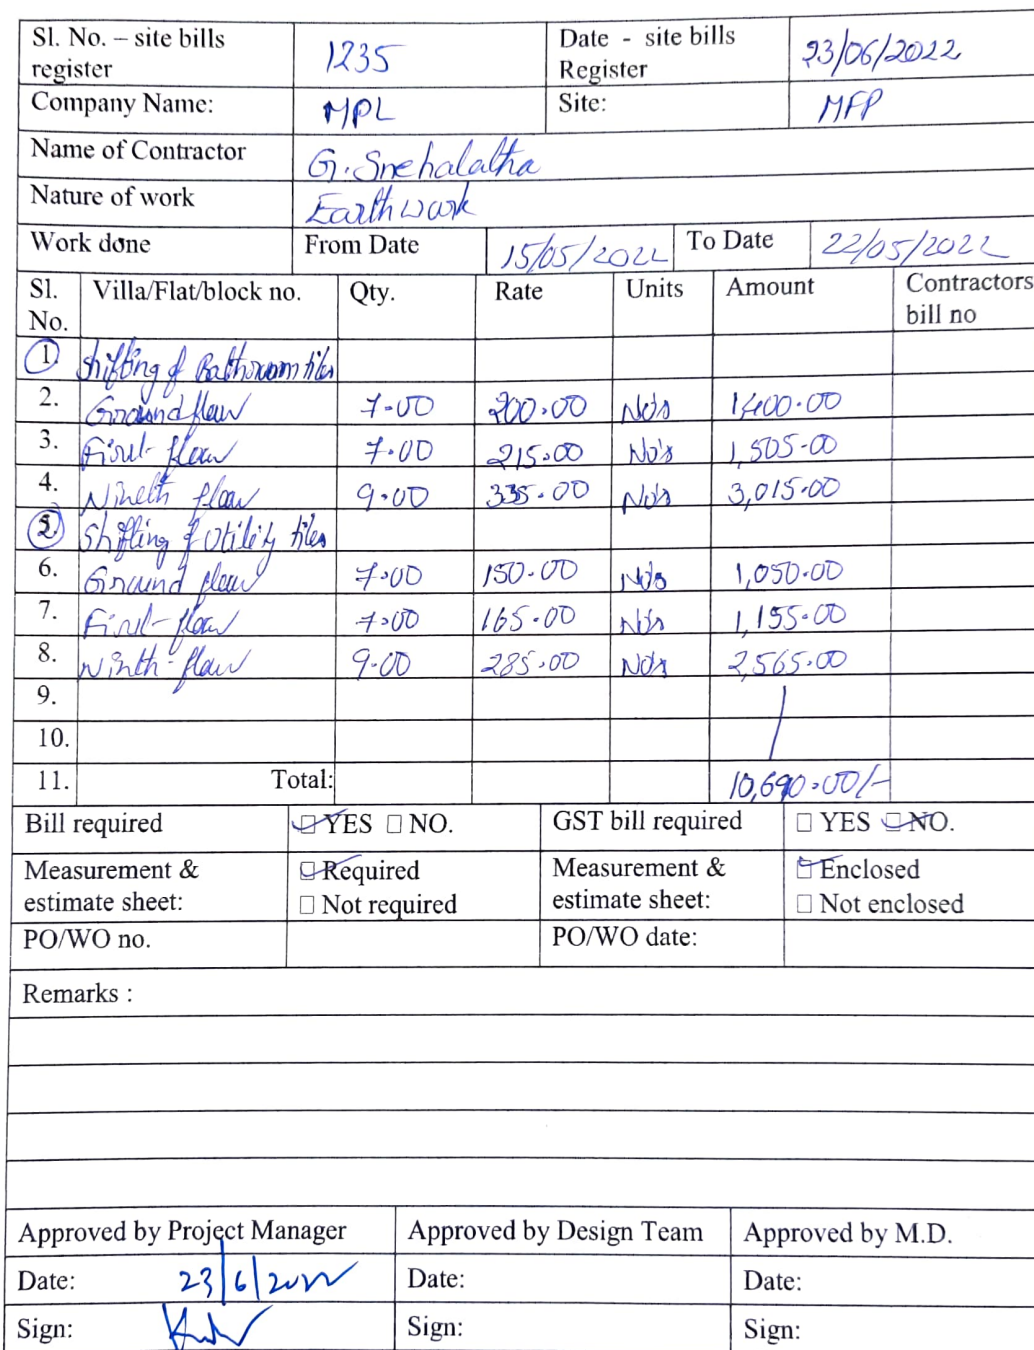 Sl. No. – site bills register 1235 Date - site bills Register 23/06/2022
Company Name: MPL Site: MFP
Name of Contractor G. Snehalatha
Nature of work Earthwork
Work done From Date 15/05/2022 To Date 22/05/2022
Sl. No. Villa/Flat/block no. Qty. Rate Units Amount Contractors bill no
1. Shifting of Bathroom tiles
2. Ground floor 7.00 200.00 No's 1400.00
3. First floor 7.00 215.00 No's 1,505.00
4. Nineth floor 9.00 335.00 No's 3,015.00
2. Shifting of Utility tiles
6. Ground floor 7.00 150.00 No's 1,050.00
7. First floor 7.00 165.00 No's 1,155.00
8. Ninth floor 9.00 285.00 No's 2,565.00
9.
10.
11. Total: 10,690.00/-
Bill required YES NO. GST bill required YES NO.
Measurement & estimate sheet: Required Not required Measurement & estimate sheet: Enclosed Not enclosed
PO/WO no. PO/WO date:
Remarks :
Approved by Project Manager Approved by Design Team Approved by M.D.
Date: 23/6/2022 Date: Date:
Sign: Sign: Sign: